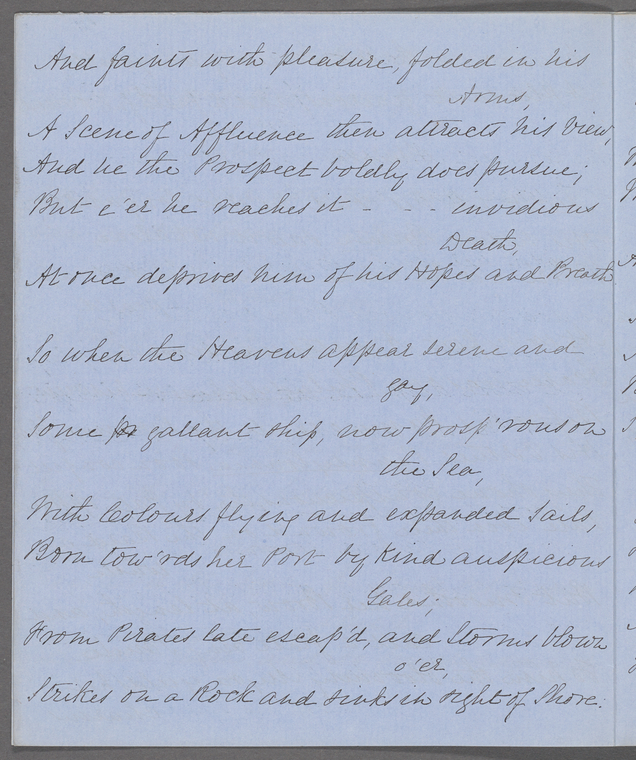 And faints with pleasure, folded in his
Arms,
A Scene of Affluence then attracts his View,
And he the Prospect boldly does pursue;
But e'er he reaches it - - - invidious
Death,
At once deprives him of his Hopes and Breath
So when the Heavens appear serene and
gay,
Some gallant ship, now prosp'rous on
the Sea,
With Colours flying and expanded Sails,
Born tow'rds her Port by kind auspicious
Gales;
From Pirates late escap'd, and Storms blown
o'er,
Strikes on a Rock and sinks in sight of Shore.